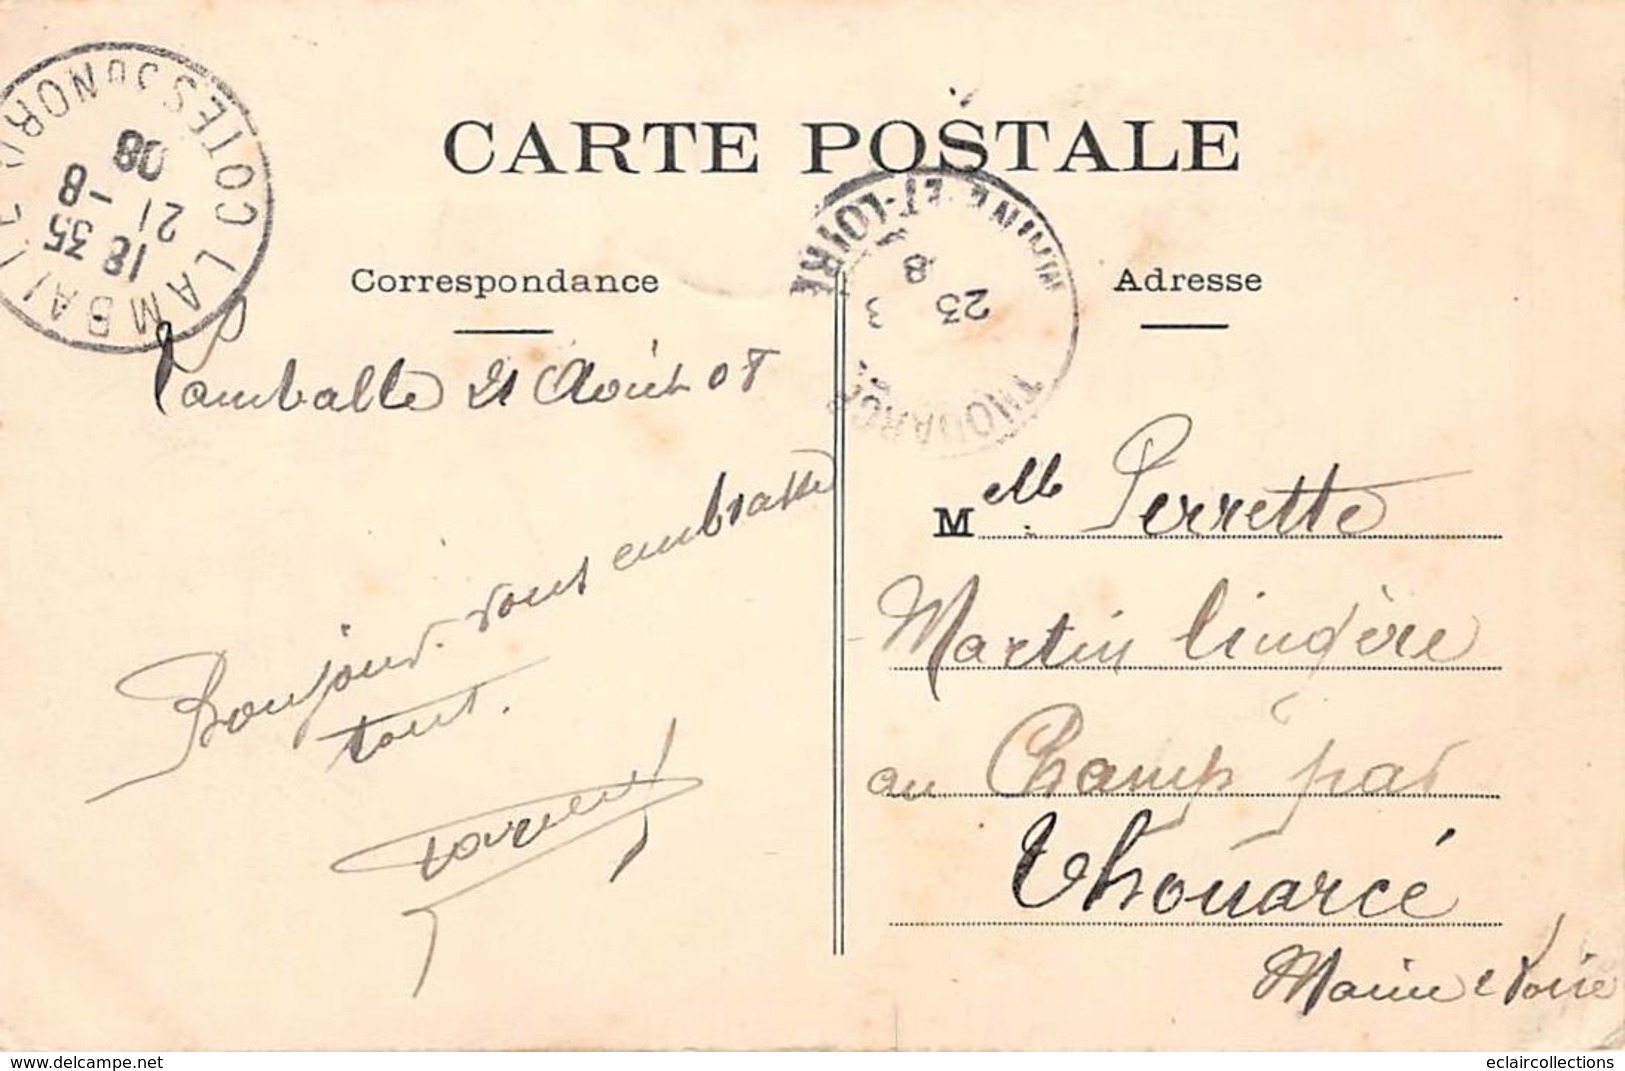 CARTE POSTALE
COTES DU NORD
LAMBALLE
18 35
21 -8
08
MAINE-ET-LOIRE
23
8
THOUARCÉ
Correspondance
Adresse
Lamballe 21 Août 08
Bonjour. vous embrasse
tous.
Melle Perrette
Martin lingère
au Champ par
Thouarcé
Maine e Loire
delcampe.net
eclaircollections